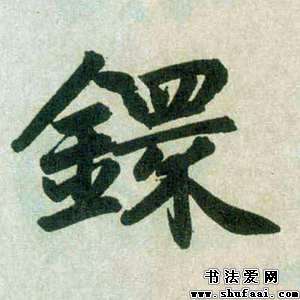 鐶
书法爱网
www.shufaai.com